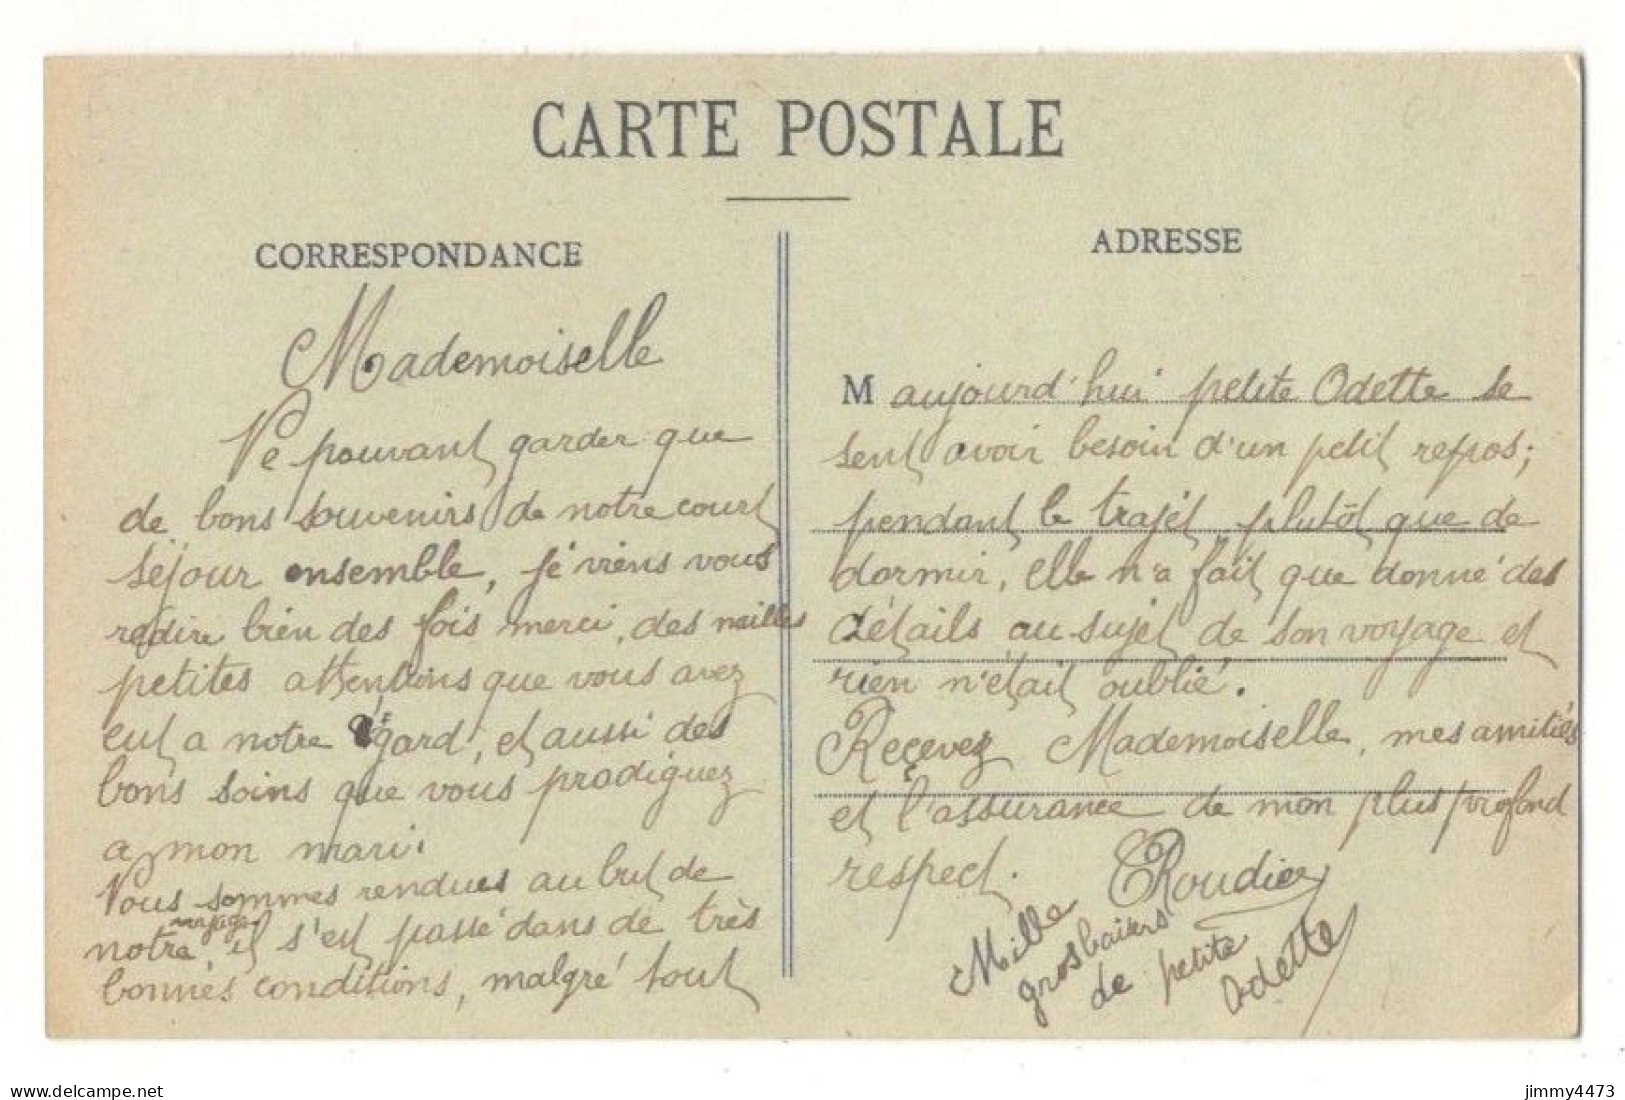 CARTE POSTALE
CORRESPONDANCE
Mademoiselle
Ne pouvant garder que
de bons souvenirs de notre court
séjour ensemble, je viens vous
redire bien des fois merci, des milles
petites attentions que vous avez
eut a notre égard, et aussi des
bons soins que vous prodiguez
a mon mari.
Nous sommes rendues au but de
notre voyage, il s'est passé dans de très
bonnes conditions, malgré tout
ADRESSE
M aujourd'hui petite Odette se
sent avoir besoin d'un petit repos;
pendant le trajet plutôt que de
dormir, elle n'a fait que donné des
détails au sujet de son voyage et
rien n'était oublié.
Reçevez Mademoiselle, mes amitiés
et l'assurance de mon plus profond
respect. Roudier
Mille
gros baisers
de petite
Odette
delcampe.net
jimmy4473